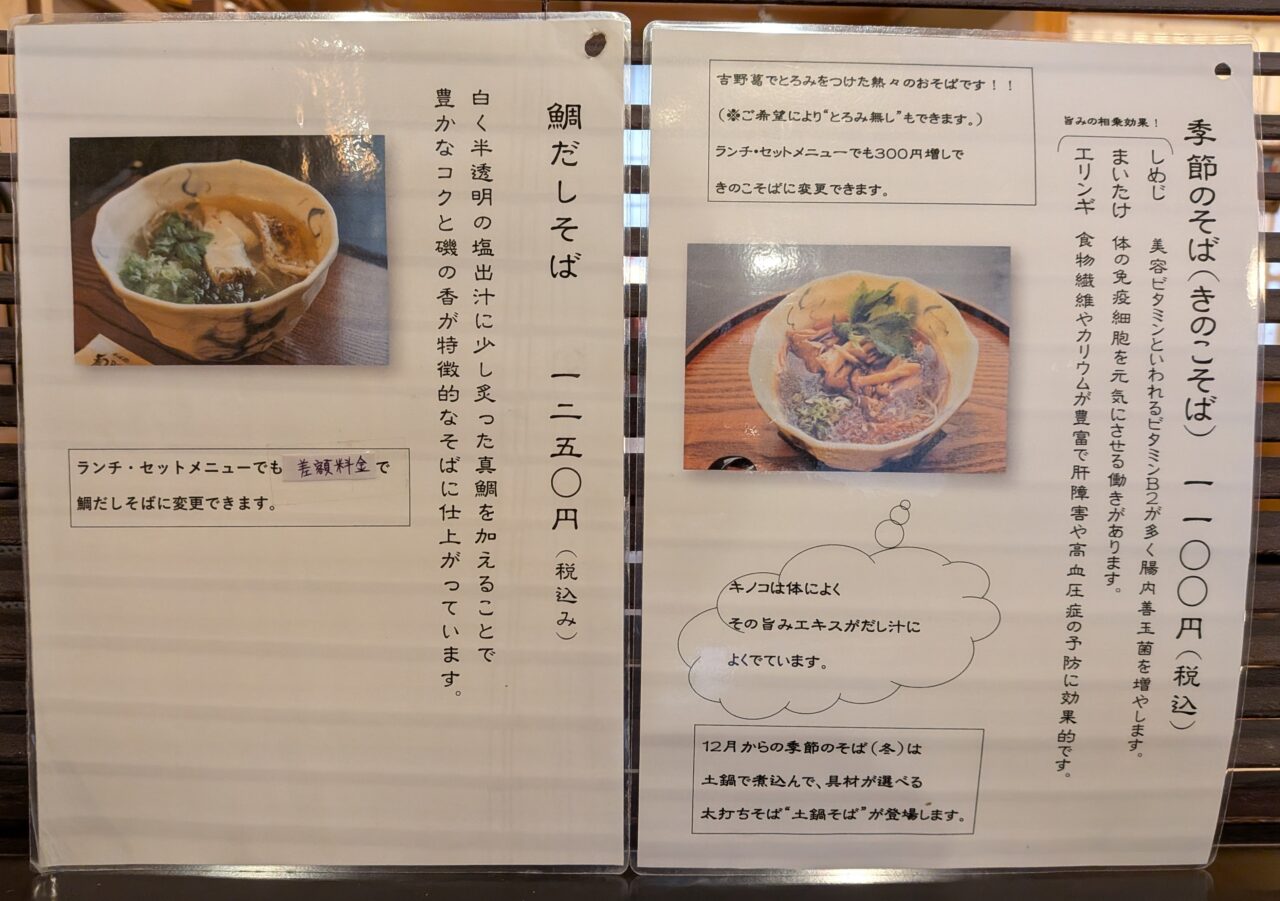 鯛だしそば 一二五〇円(税込み)
白く半透明の塩出汁に少し炙った真鯛を加えることで
豊かなコクと磯の香が特徴的なそばに仕上がっています。
ランチ・セットメニューでも差額料金で
鯛だしそばに変更できます。
季節のそば(きのこそば) 一一〇〇円(税込)
旨みの相乗効果!
しめじ 美容ビタミンといわれるビタミンB2が多く腸内善玉菌を増やします。
まいたけ 体の免疫細胞を元気にさせる働きがあります。
エリンギ 食物繊維やカリウムが豊富で肝障害や高血圧症の予防に効果的です。
吉野葛でとろみをつけた熱々のおそばです!!
(※ご希望により“とろみ無し”もできます。)
ランチ・セットメニューでも300円増しで
きのこそばに変更できます。
キノコは体によく
その旨みエキスがだし汁に
よくでています。
12月からの季節のそば(冬)は
土鍋で煮込んで、具材が選べる
太打ちそば“土鍋そば”が登場します。